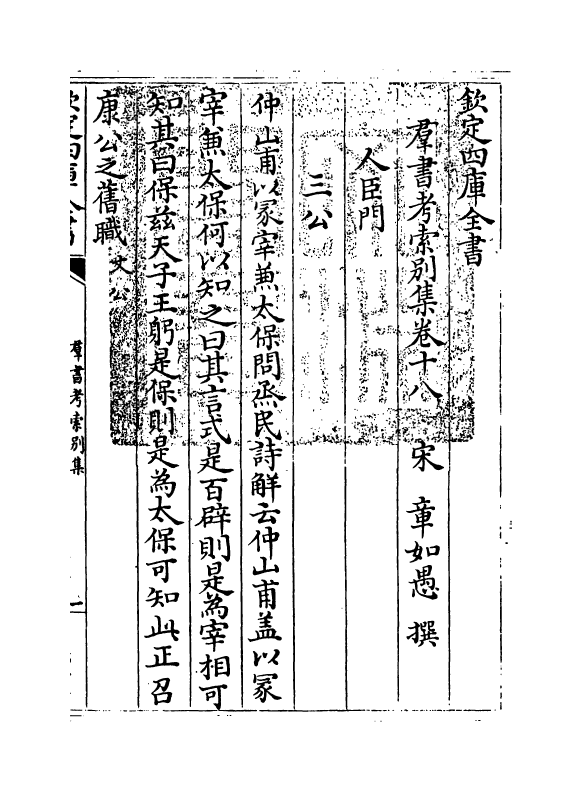 欽定四庫全書
羣書考索别集卷十八
宋 章如愚 撰
人臣門
三公
仲山甫以冢宰兼太保問烝民詩解云仲山甫盖以冢
宰兼太保何以知之曰其言式是百辟則是為宰相可
知其曰保兹天子王躬是保則是為太保可知此正召
康公之舊職文公
欽定四庫全書
羣書考索别集
一